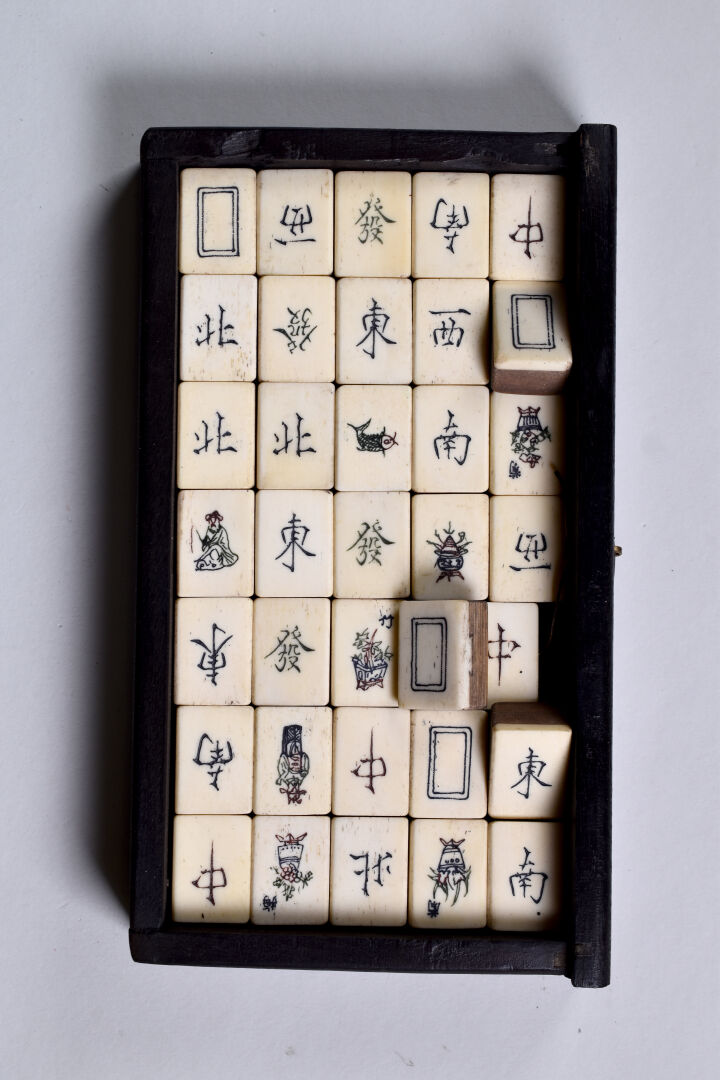 西 發 南 中
北 發 東 西
北 北 南
東 發 西
東 發 竹 中
南 中 東
中 北 南